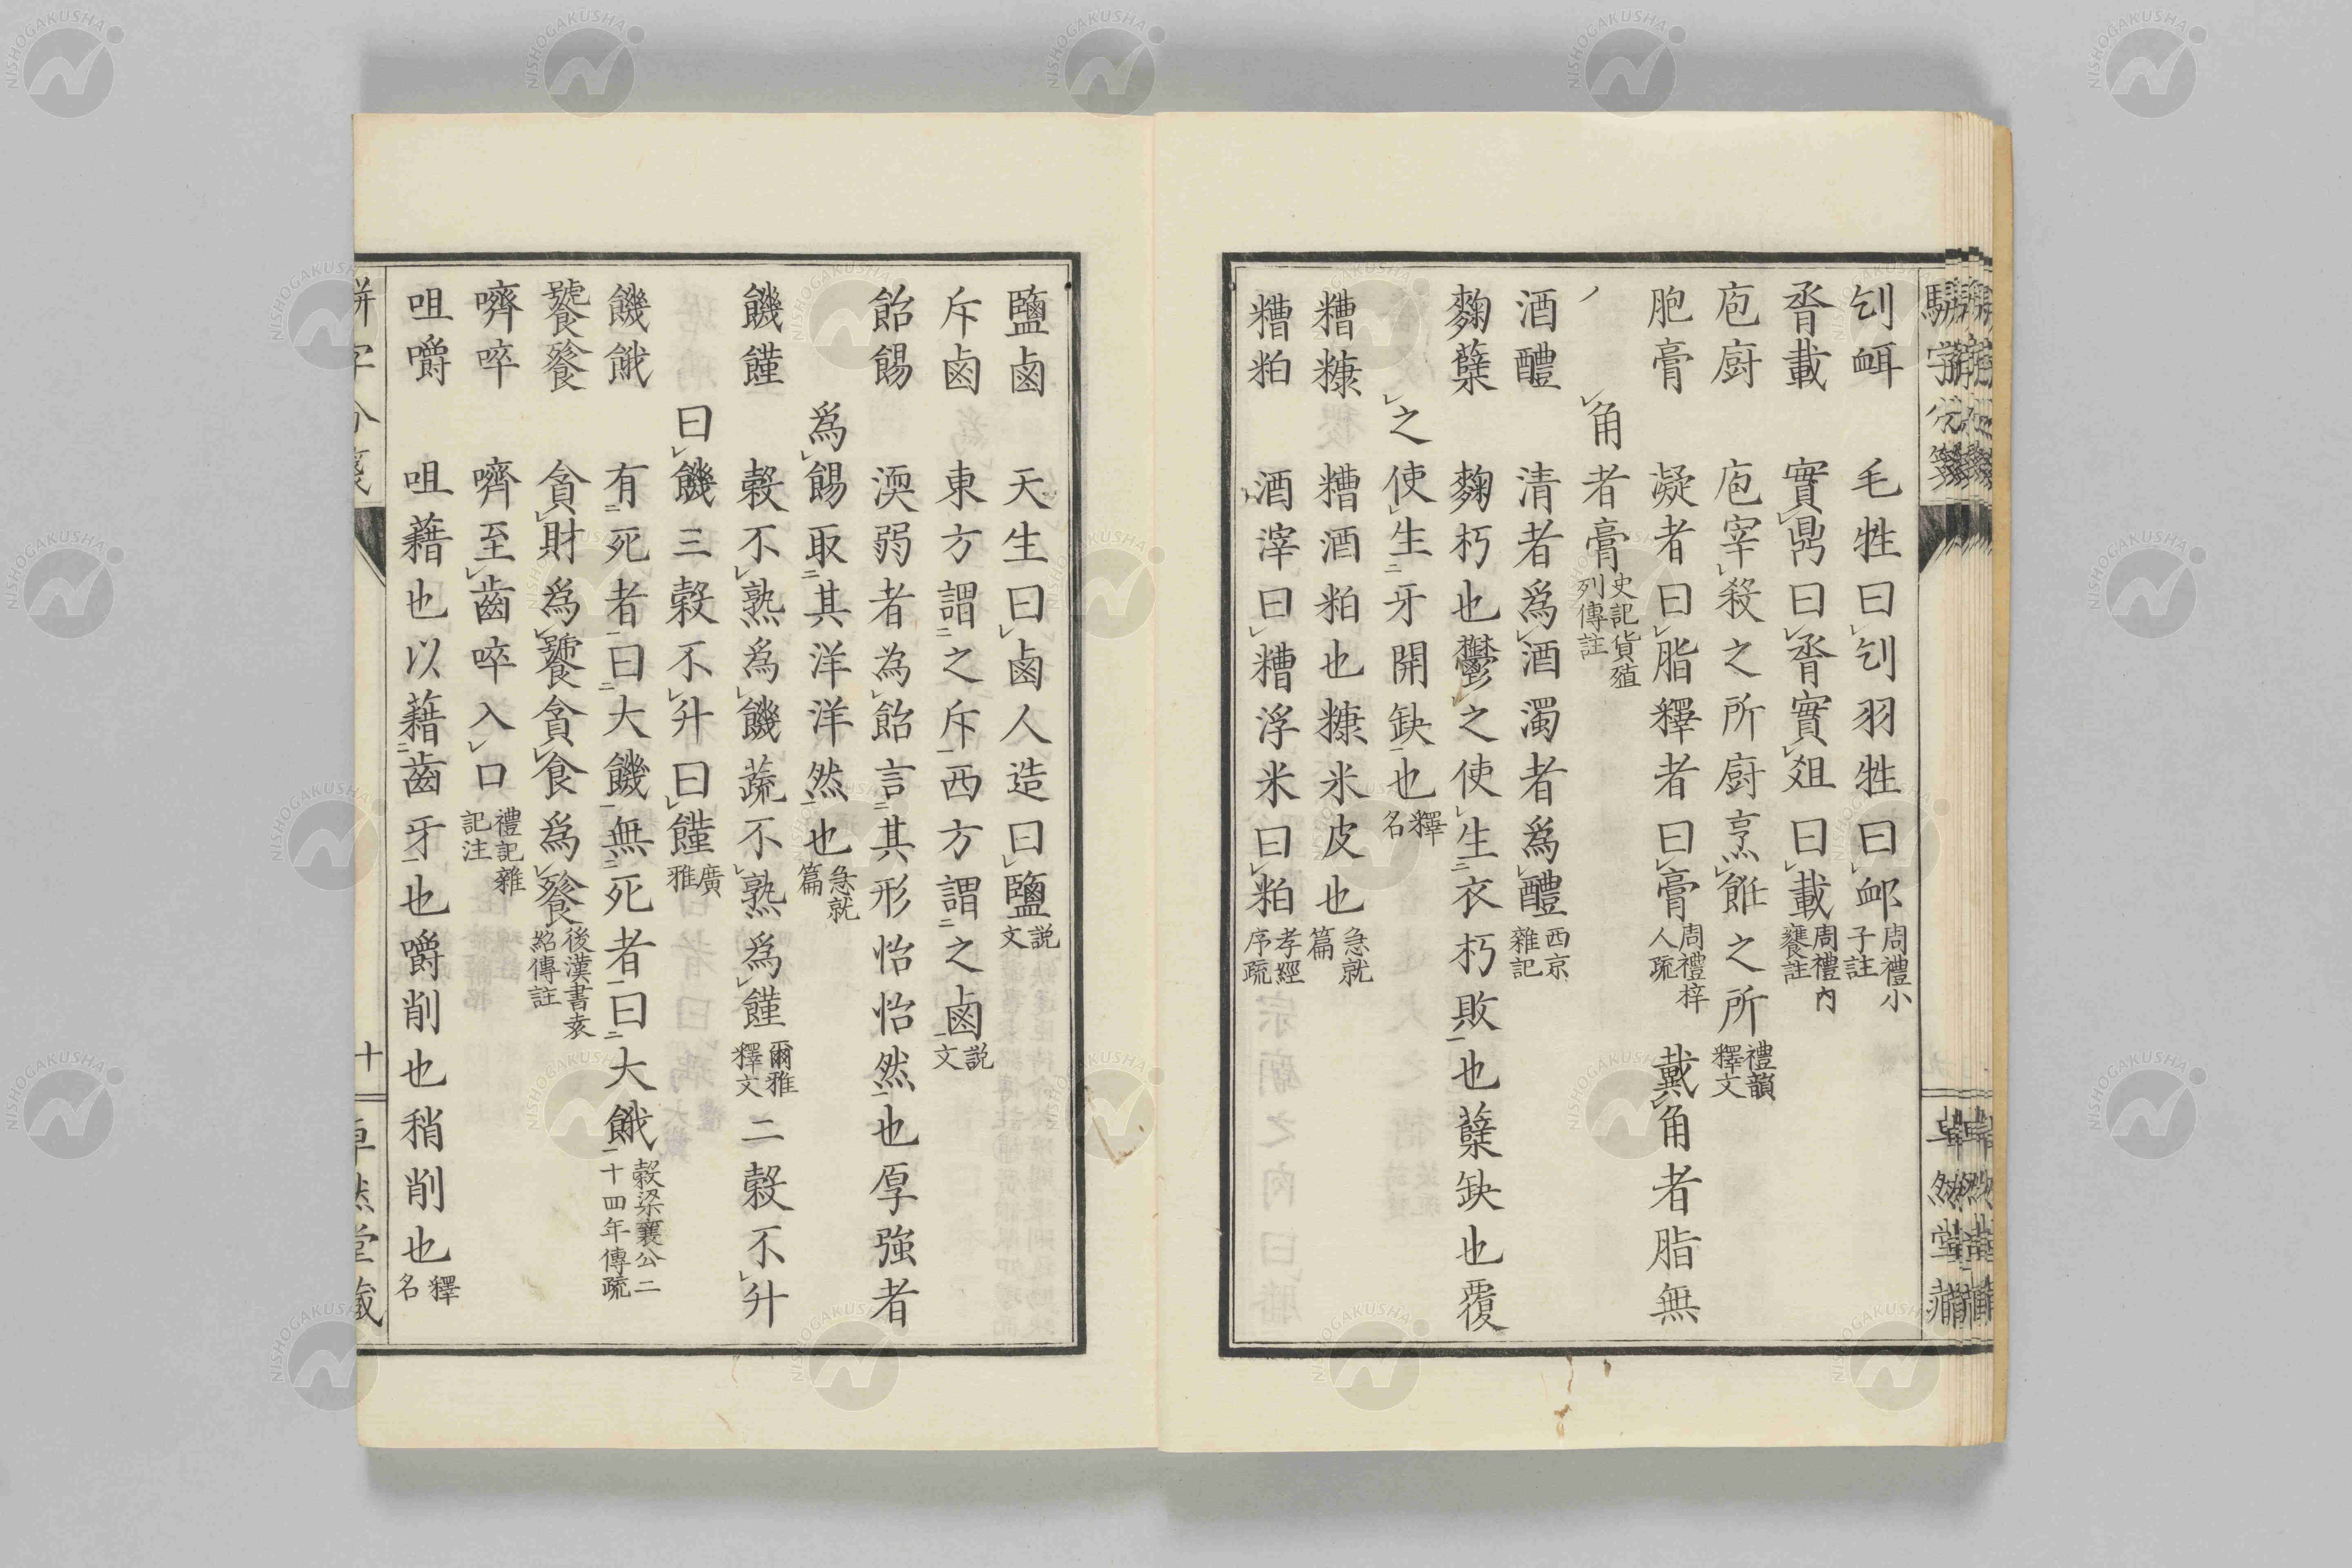 刉衈 毛牲曰刉羽牲曰衈周禮小子註
胥載 實鼎曰胥實爼曰載周禮內饔註
庖廚 庖宰殺之所廚烹飪之所禮韻釋文
胞膏 凝者曰脂釋者曰膏周禮梓人疏 戴角者脂無
角者膏史記貨殖列傳註
酒醴 清者為酒濁者為醴西京雜記
麴糵 麴朽也鬱之使生衣朽敗也糵缺也覆
之使生牙開缺也釋名
糟糠 糟酒粕也糠米皮也急就篇
糟粕 酒滓曰糟浮米曰粕孝經序疏
鹽鹵 天生曰鹵人造曰鹽説文
斥鹵 東方謂之斥西方謂之鹵説文
飴餳 渜弱者為飴言其形怡怡然也厚強者
為餳取其洋洋然也急就篇
饑饉 穀不熟為饑蔬不熟為饉爾雅釋文 二穀不升
曰饑三穀不升曰饉廣雅
饑餓 有死者曰大饑無死者曰大餓穀梁襄公二十四年傳疏
饕餮 貪財為饕貪食為餮後漢書袁紹傳註
嚌啐 嚌至齒啐入口禮記雜記注
咀嚼 咀藉也以藉齒牙也嚼削也稍削也釋名
駢字分箋
十
卓然堂藏
NISHOGAKUSHA